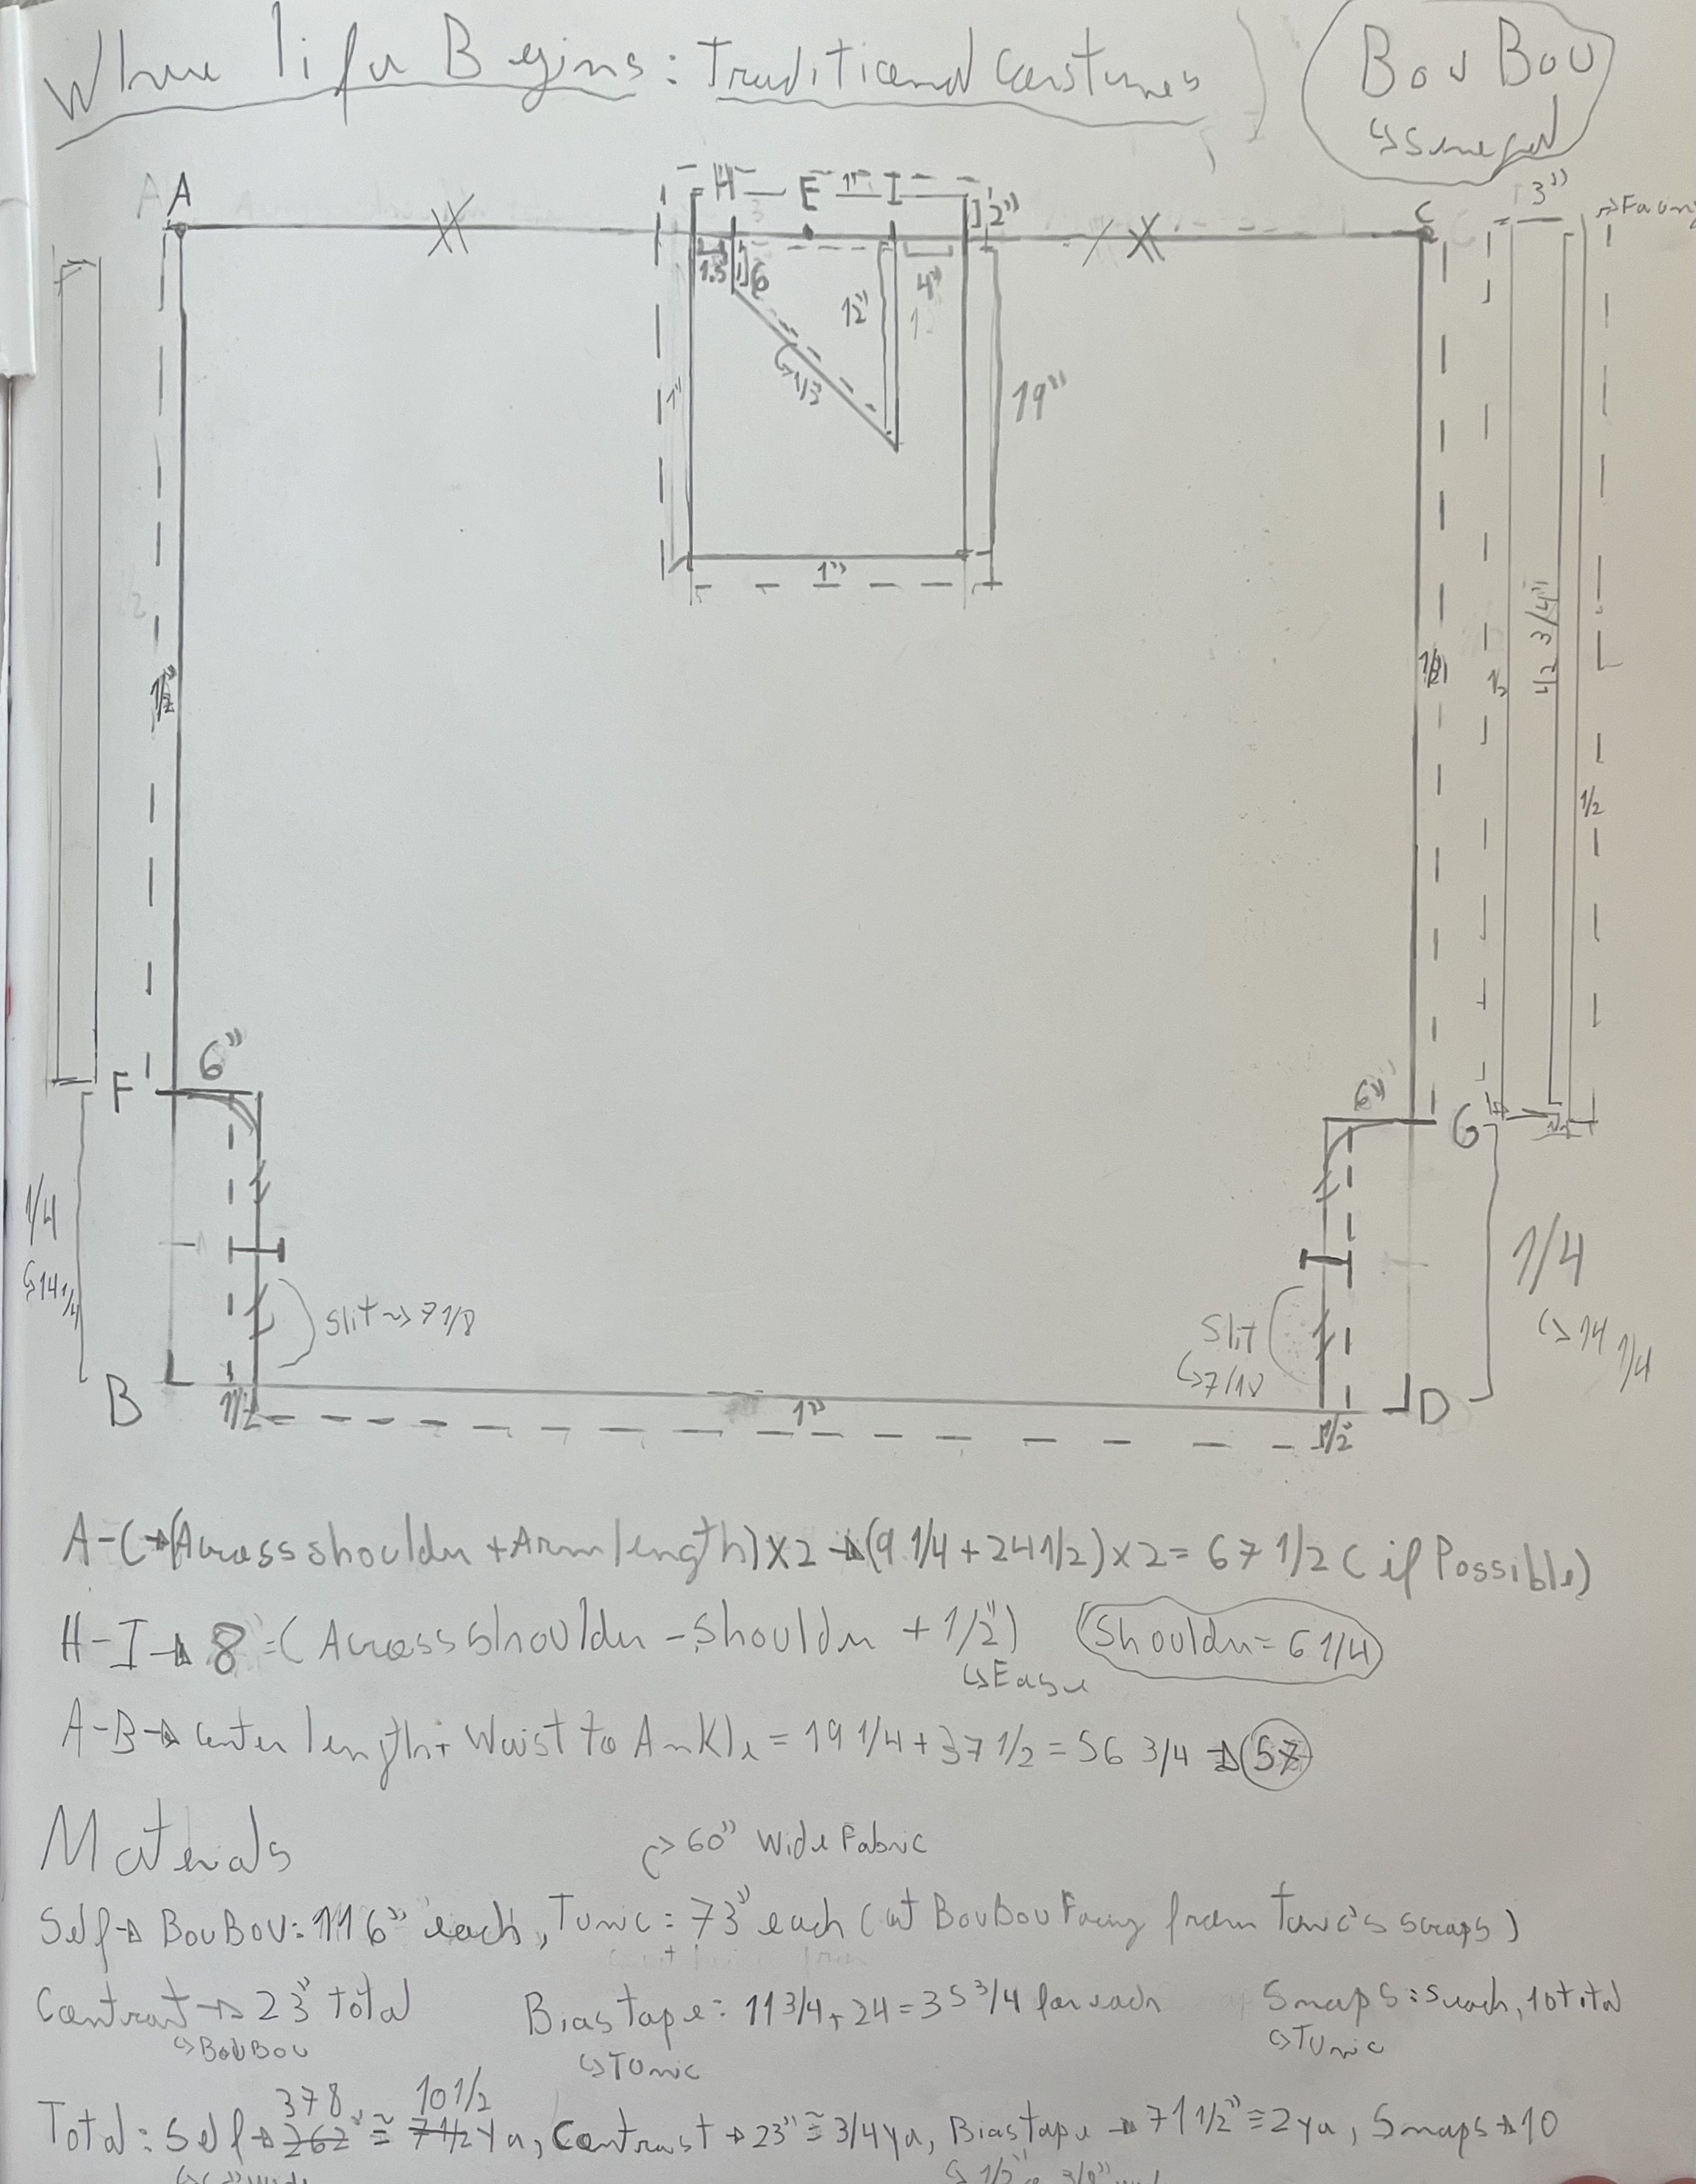 Where life Begins: Traditional Costumes
BouBou
↳ Senegal
A
H E 1" I
]2"
C
3"
→ Facing
1.5
]6
12"
4"
↳1/3
1"
19"
1"
1/2"
1/2
1/2
42 3/4"
1/2
F
6"
6"
G
1/4
↳14 1/4
Slit → 7 1/8
Slit
↳7 1/8
1/4
↳ 14 1/4
B
1/2
1"
1/2
D
A-C→(Across shoulder + Arm length) x 2 → (9 1/4 + 24 1/2) x 2 = 67 1/2 (if Possible)
H-I→ 8" = (Across shoulder - shoulder + 1/2")
↳Ease
Shoulder = 6 1/4
A-B→ center length + Waist to Ankle = 19 1/4 + 37 1/2 = 56 3/4 → 57
Materials
↳ 60" Wide Fabric
Self→ BouBou: 116" each, Tunic: 73" each (cut BouBou Facing from Tunic's scraps)
Contrast → 23" total
↳BouBou
Bias tape: 11 3/4 + 24 = 35 3/4 for each
↳Tunic
Snaps: 5 each, 10 total
↳Tunic
378 10 1/2
Total: Self→ 262" ≅ 7 1/2 ya, Contrast → 23" ≅ 3/4 ya, Bias tape → 71 1/2" ≅ 2 ya, Snaps → 10